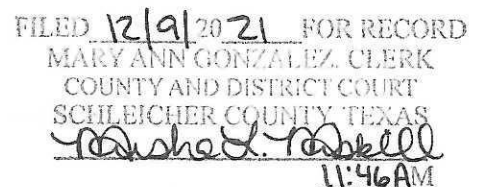 FILED 12/9/2021 FOR RECORD
MARY ANN GONZALEZ, CLERK
COUNTY AND DISTRICT COURT
SCHLEICHER COUNTY, TEXAS
11:46AM